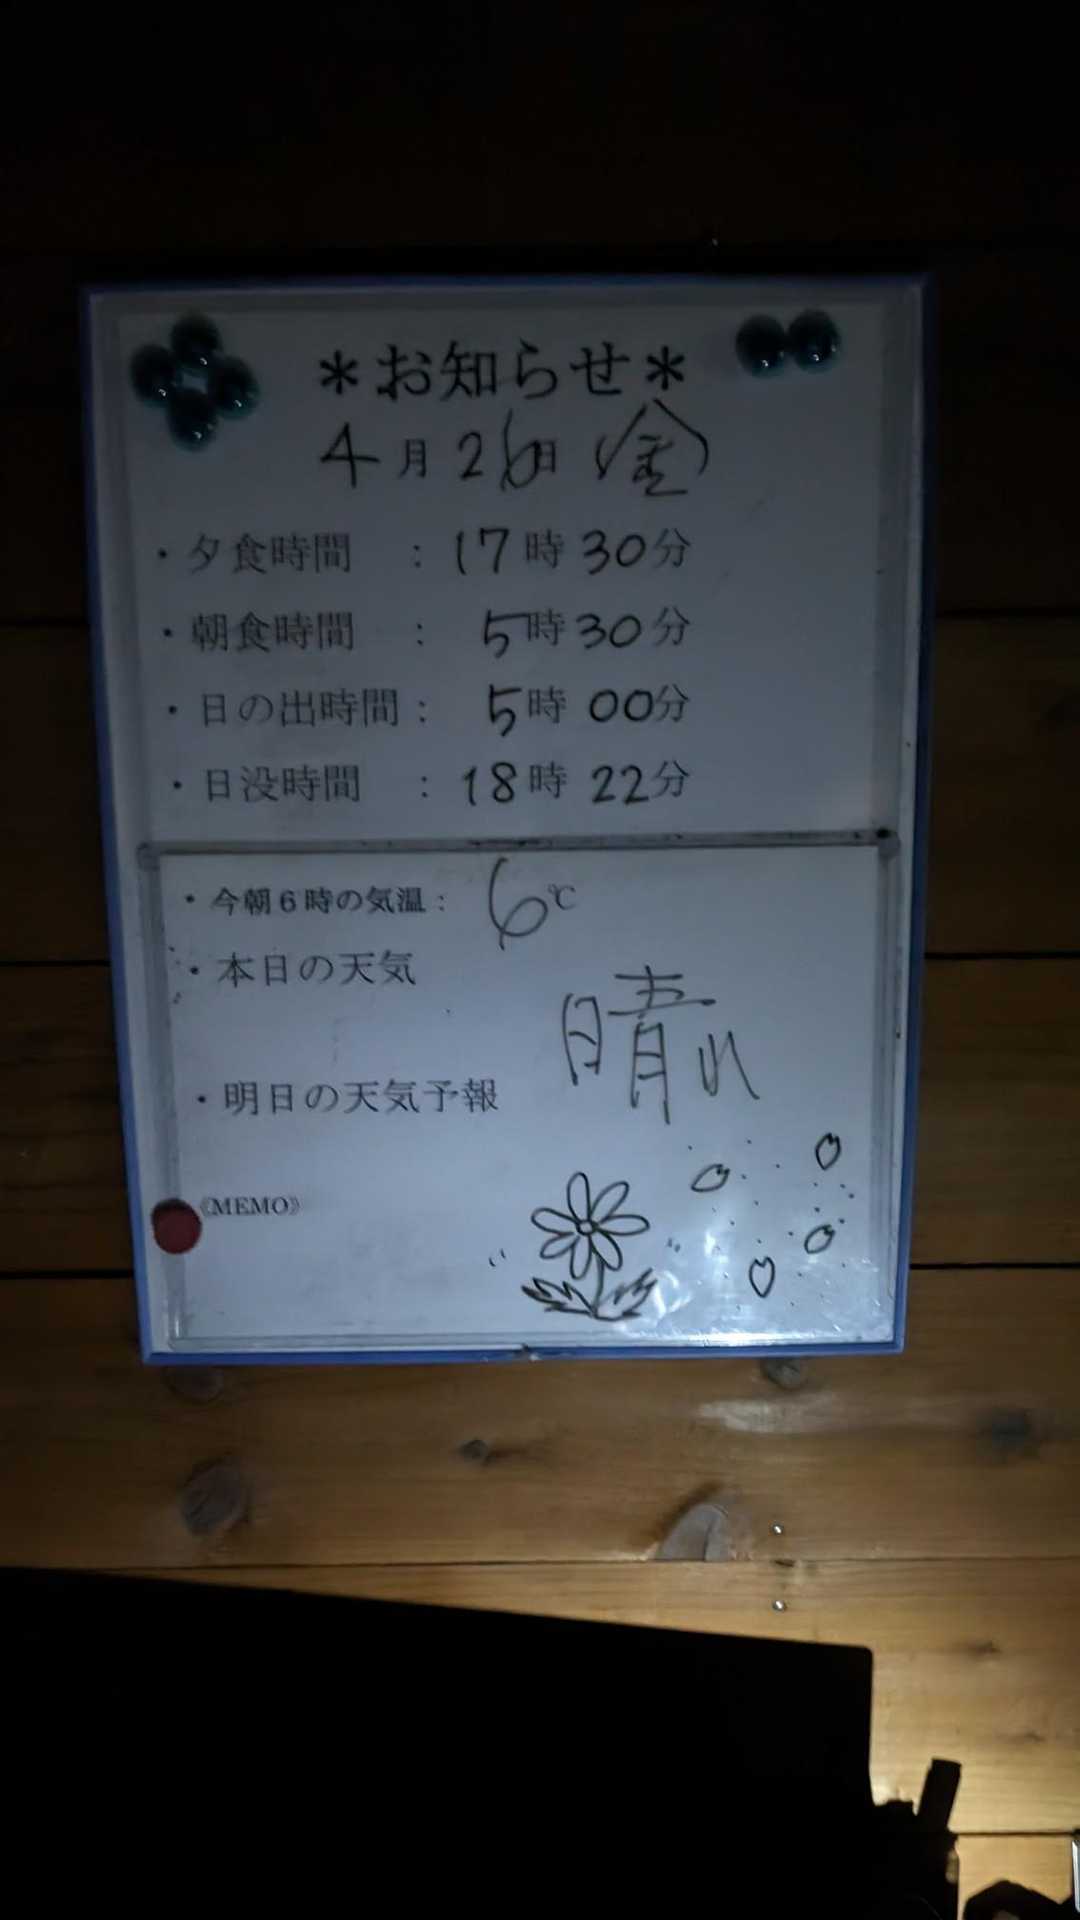 *お知らせ*
4月26日(金)
・夕食時間 : 17時30分
・朝食時間 : 5時30分
・日の出時間: 5時00分
・日没時間 : 18時22分
・今朝6時の気温: 6℃
・本日の天気
晴れ
・明日の天気予報
《MEMO》